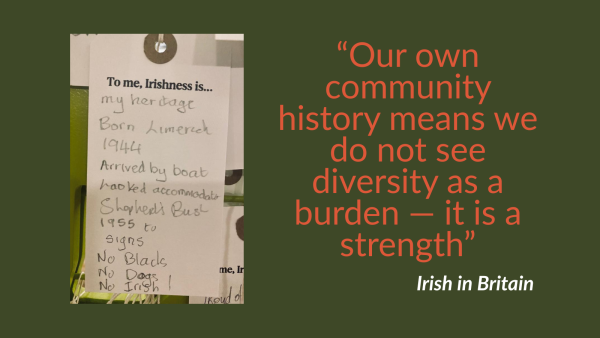 To me, Irishness is...
my heritage
Born Limerick
1944
Arrived by boat
Looked accommodate
Shepherd's Bush
1955 to
signs
No Blacks
No Dogs
No Irish!
me, Ir
proud of
“Our own
community
history means we
do not see
diversity as a
burden — it is a
strength”
Irish in Britain